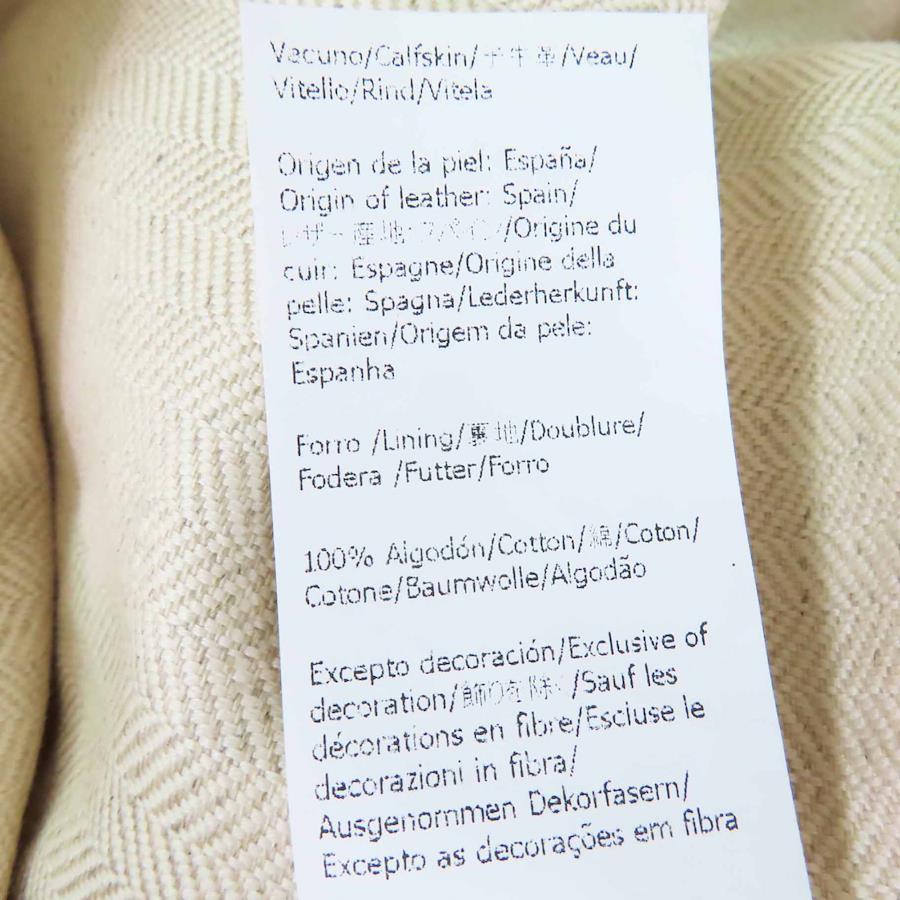 Vacuno/Calfskin/子牛革/Veau/
Vitello/Rind/Vitela
Origen de la piel: España/
Origin of leather: Spain/
レザー産地:スペイン/Origine du
cuir: Espagne/Origine della
pelle: Spagna/Lederherkunft:
Spanien/Origem da pele:
Espanha
Forro /Lining/裏地/Doublure/
Fodera /Futter/Forro
100% Algodón/Cotton/綿/Coton/
Cotone/Baumwolle/Algodão
Excepto decoración/Exclusive of
decoration/飾りを除く/Sauf les
décorations en fibre/Escluse le
decorazioni in fibra/
Ausgenommen Dekorfasern/
Excepto as decorações em fibra